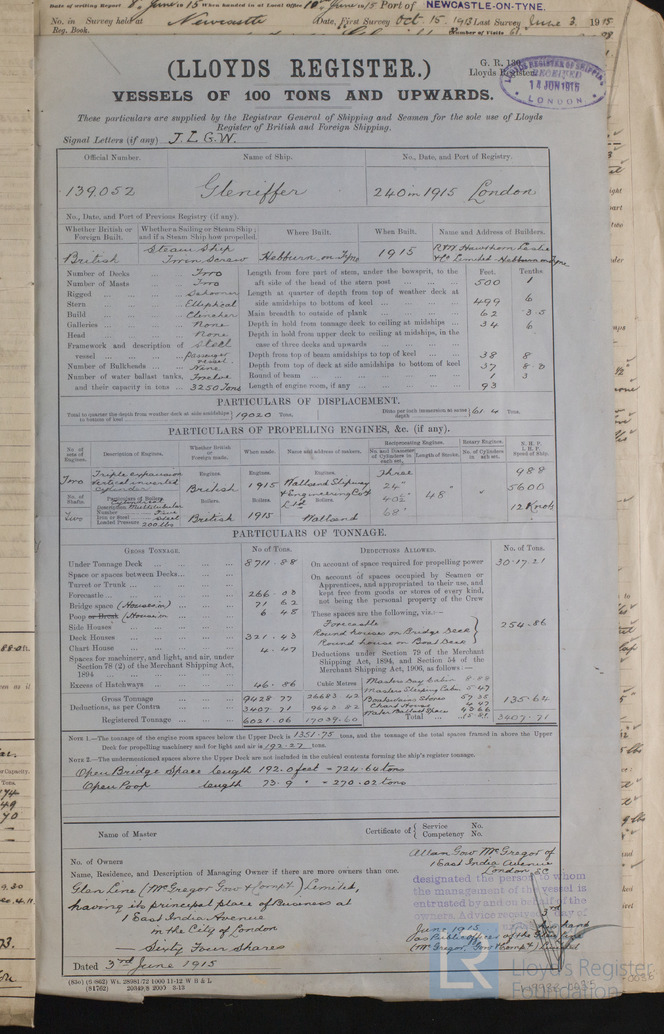 Date of writing Report 8. June 1915 When handed in at Local Office 10. June 1915 Port of NEWCASTLE-ON-TYNE.
No. in Survey held at Newcastle Date, First Survey Oct 15. 1913 Last Survey June 3. 1915
Reg. Book. Number of Visits 61
(LLOYDS REGISTER.)
G. R. 130
Lloyds Register
LLOYD'S REGISTER OF SHIPPING
RECEIVED
14 JUN 1915
LONDON
VESSELS OF 100 TONS AND UPWARDS.
These particulars are supplied by the Registrar General of Shipping and Seamen for the sole use of Lloyds
Register of British and Foreign Shipping.
Signal Letters (if any) J.L.G.W.
Official Number. Name of Ship. No., Date, and Port of Registry.
139,052 Gleniffer 240 in 1915 London
No., Date, and Port of Previous Registry (if any).
Whether British or Foreign Built. Whether a Sailing or Steam Ship; and if a Steam Ship how propelled. Where Built. When Built. Name and Address of Builders.
British Steam Ship Twin Screw Hebburn on Tyne 1915 R&W Hawthorn Leslie & Co Limited Hebburn on Tyne
Number of Decks Two
Number of Masts Two
Rigged Schooner
Stern Elliptical
Build Clencher
Galleries None
Head None
Framework and description of vessel Steel passenger vessel
Number of Bulkheads Nine
Number of water ballast tanks, Twelve
and their capacity in tons 3250 Tons
Feet. Tenths
Length from fore part of stem, under the bowsprit, to the
aft side of the head of the stern post 500 1
Length at quarter of depth from top of weather deck at
side amidships to bottom of keel 499 6
Main breadth to outside of plank 62 3.5
Depth in hold from tonnage deck to ceiling at midships 34 6
Depth in hold from upper deck to ceiling at midships, in the
case of three decks and upwards
Depth from top of beam amidships to top of keel 38 8
Depth from top of deck at side amidships to bottom of keel 37 8.0
Round of beam 1 3
Length of engine room, if any 93
PARTICULARS OF DISPLACEMENT.
Total to quarter the depth from weather deck at side amidships to bottom of keel 19020 Tons. Ditto per inch immersion at same depth 61.4 Tons.
PARTICULARS OF PROPELLING ENGINES, &c. (if any).
No. of sets of Engines. Description of Engines. Whether British or Foreign made. When made. Name and address of makers. Reciprocating Engines. Rotary Engines. N. H. P. I. H. P. Speed of Ship.
No. and Diameter of Cylinders in each set. Length of Stroke. No. of Cylinders in each set.
Two Triple expansion vertical inverted cylinder Engines. British Engines. 1915 Engines. Wallsend Slipway & Engineering Co Ltd Three 24" 40½" 68" 48" " 988 5600 12 Knots
No. of Shafts. Particulars of Boilers.
Two Description Cylindrical Multitubular
Number Five
Iron or Steel Steel
Loaded Pressure 200 lbs
Boilers. British Boilers 1915 Boilers. Wallsend
PARTICULARS OF TONNAGE.
GROSS TONNAGE. No. of Tons.
Under Tonnage Deck 8711.88
Space or spaces between Decks
Turret or Trunk
Forecastle 266.03
Bridge space (House in) 71 62
Poop or Break (House in 6 48
Side Houses
Deck Houses 321.43
Chart House 4.47
Spaces for machinery, and light, and air, under
Section 78 (2) of the Merchant Shipping Act,
1894
Excess of Hatchways 46.86
Gross Tonnage 9428 77
Deductions, as per Contra 3407.71
Registered Tonnage 6021.06
Cubic Metres
26683 42
9643 82
17039.60
DEDUCTIONS ALLOWED. No. of Tons.
On account of space required for propelling power 3017.21
On account of spaces occupied by Seamen or
Apprentices, and appropriated to their use, and
kept free from goods or stores of every kind,
not being the personal property of the Crew
These spaces are the following, viz.:—
Forecastle
Round houses on Bridge Deck
Round house on Boat Deck
254.86
Deductions under Section 79 of the Merchant
Shipping Act, 1894, and Section 54 of the
Merchant Shipping Act, 1906, as follows:—
Masters Day Cabin 8.88
Masters Sleeping Cabin 5.47
Boatswains Stores 57.35
Chart House 4.47
Water Ballast Space
135.64
Total 3407.71
NOTE 1.—The tonnage of the engine room spaces below the Upper Deck is 1351.75 tons, and the tonnage of the total spaces framed in above the Upper
Deck for propelling machinery and for light and air is 192.27 tons.
NOTE 2.—The undermentioned spaces above the Upper Deck are not included in the cubical contents forming the ship's register tonnage.
Open Bridge Space length 192.0 feet = 724.64 tons
Open Poop length 73.9 " = 270.02 tons
Name of Master Certificate of Service No. Competency No.
No. of Owners
Name, Residence, and Description of Managing Owner if there are more owners than one.
Glen Line (McGregor Gow & Compy) Limited,
having its principal place of Business at
1 East India Avenue
in the City of London
— Sixty Four Shares
Allan Gow McGregor of
1 East India Avenue
London EC
designated the person to whom
the management of the vessel is
entrusted by and on behalf of the
owners. Advice received 3rd day of
June 1915 under the hand
Dated 3rd June 1915
Lloyd's Register
Foundation